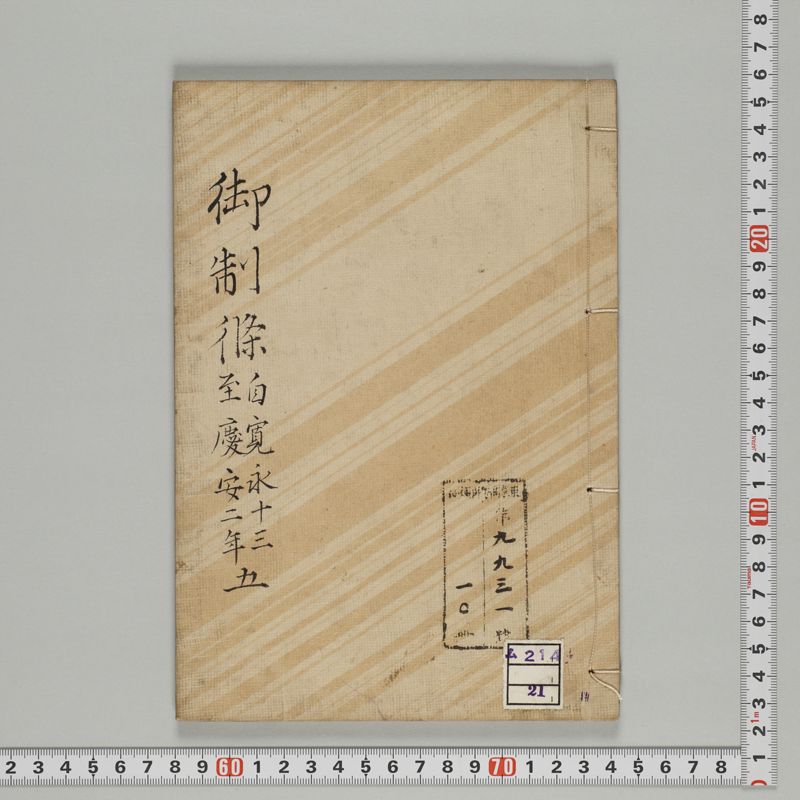 御制條
自寛永十三
至慶安二年
五
第九九三一号
一〇冊
ム214
21
8 7 6 5 4 3 2 1 20 9 8 7 6 5 4 3 2 1 10 9 8 7 6 5 4 3 2 1
JAPAN
1m
2 3 4 5 6 7 8 9 60 1 2 3 4 5 6 7 8 9 70 1 2 3 4 5 6 7 8